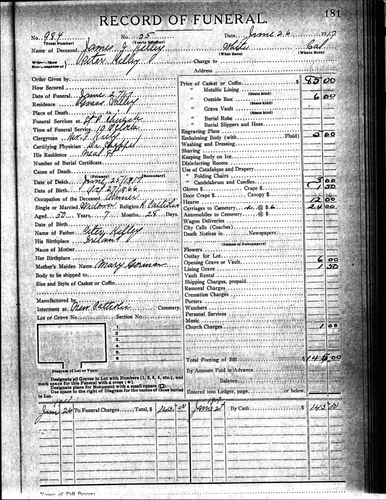 RECORD OF FUNERAL. 181
No. 984 No. 25 Date June 26 1917
(Total Number) (Yearly Number) (When Born) (Where Born)
Name of Deceased James J. Kelley White Cal.
Peter Kelley Charge to
Address
Order Given by
How Secured
Date of Funeral June 27/17
Residence Grass Valley
Place of Death
Funeral Services at St. P. Church
Time of Funeral Service 10 o'clock
Clergyman
Certifying Physician Dr.
His Residence
Number of Burial Certificate
Cause of Death
Date of Death June 25/1917
Date of Birth Oct 27/1866
Occupation of the Deceased Miner
Single or Married Religion R. Catholic
Aged 50 Years, 7 Months, 28 Days
Name of Father Peter Kelley
His Birthplace Ireland
Name of Mother
Her Birthplace
Mother's Maiden Name Mary Gorman
Body to be shipped to
Size and Style of Casket or Coffin.
Manufactured by
Interment at New Catholic Cemetery.
Lot or Grave No. Section No.
1
2
3
4
5
Diagram of Lot or Vault
Designate all Graves in Lot with Numbers (1, 2, 3, 4, etc.), and
mark space for this Funeral with a cross (+).
Designate place for Monument with a small square
Use space in the right of Diagram for the names of those buried
in Lot.
Price of Casket or Coffin $ 85.00
Metallic Lining
(State Kind)
Outside Box 6 00
(State Kind)
Grave Vault
(State Kind)
Burial Robe
Burial Slippers and Hose
Engraving Plate
Embalming Body (with Fluid)
Washing and Dressing
Shaving
Keeping Body on Ice
Disinfecting Rooms
Use of Catafalque and Drapery
" Folding Chairs
" Candelabrum and Candles 5 00
Gloves $ Crape $ 1 50
Door Crape $ Canopy $
Hearse 12 00
Carriages to Cemetery 4 @ $6 24 00
Automobiles to Cemetery @ $
Wagon Deliveries
City Calls (Coaches)
Death Notices in Newspapers
(Names of Newspapers)
Flowers
Outlay for Lot
Opening Grave or Vault 6 00
Lining Grave 1 50
Vault Rental
Shipping Charges, prepaid
Removal Charges
Cremation Charges
Porters
Watchers
Personal Services
Music
Church Charges 1 00
Total Footing of Bill
By Amount Paid in Advance
Balance
Entered into Ledger, page or below.
1917
June 26 To Funeral Charges Total, $ 1917
By Cash $
Names of Pall Bearers